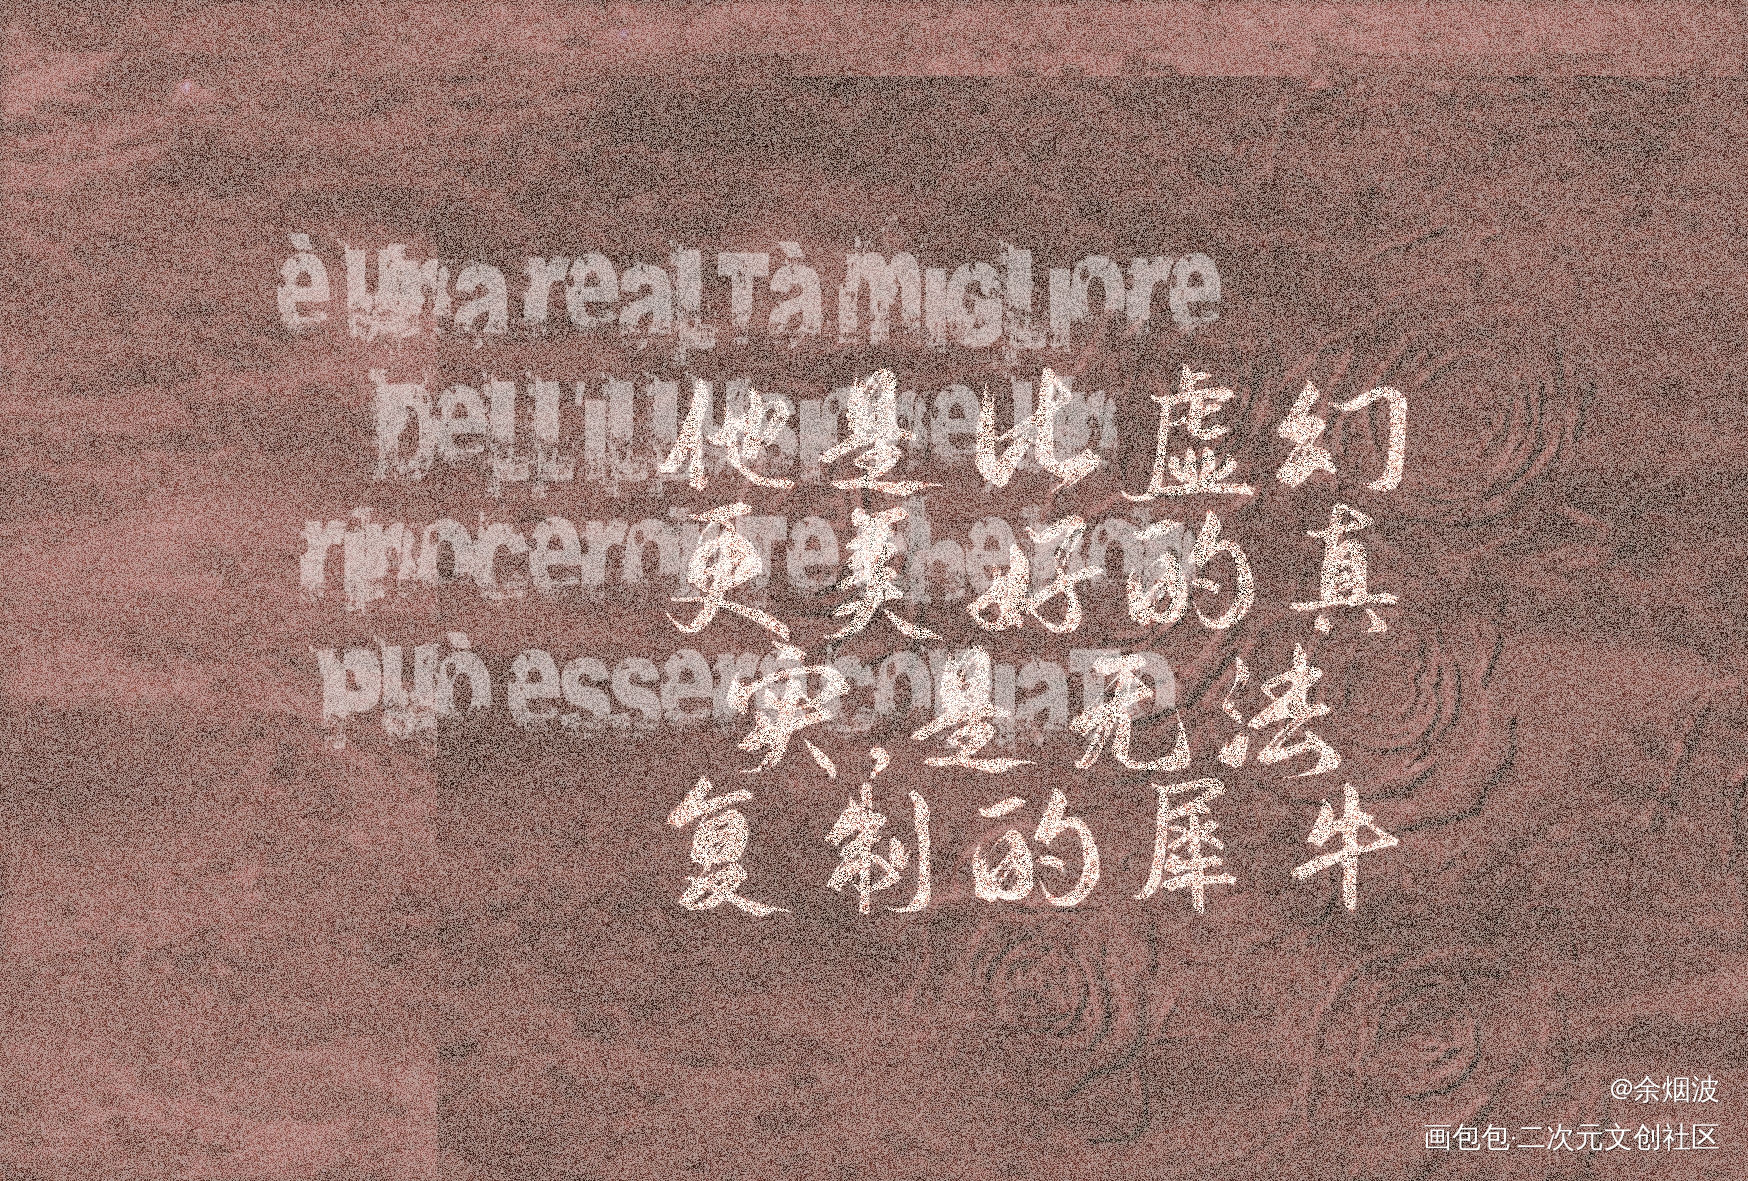 è una realTà migliore
Dell'illusione. Un
rinoceronTe che non
può essere copiaTo
他是比虚幻
更美好的真
实,是无法
复制的犀牛
@余烟波
画包包·二次元文创社区